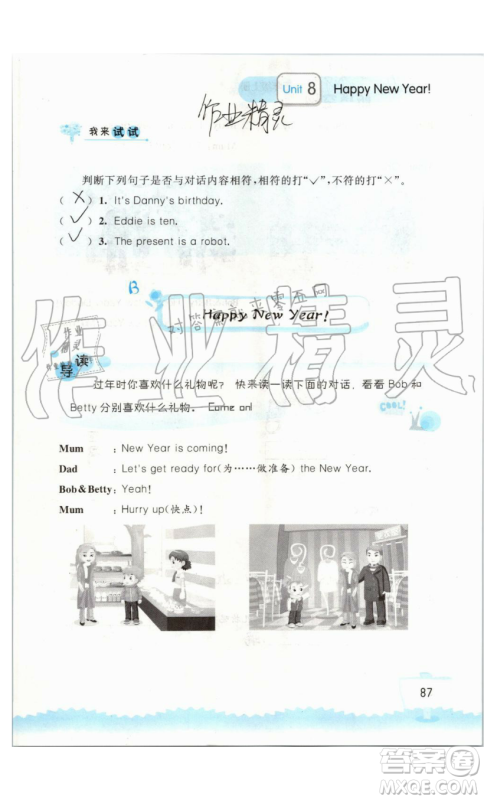 Unit 8 Happy New Year!
作业精灵
我来试试
判断下列句子是否与对话内容相符,相符的打“✓”,不符的打“×”。
( × ) 1. It's Danny's birthday.
( ✓ ) 2. Eddie is ten.
( ✓ ) 3. The present is a robot.
B
Happy New Year!
作业精灵
导读
过年时你喜欢什么礼物呢? 快来读一读下面的对话,看看Bob和
Betty分别喜欢什么礼物。 Come on!
COOL!
Mum : New Year is coming!
Dad : Let's get ready for(为……做准备) the New Year.
Bob&Betty: Yeah!
Mum : Hurry up(快点)!
87
答案圈
MXQE.COM